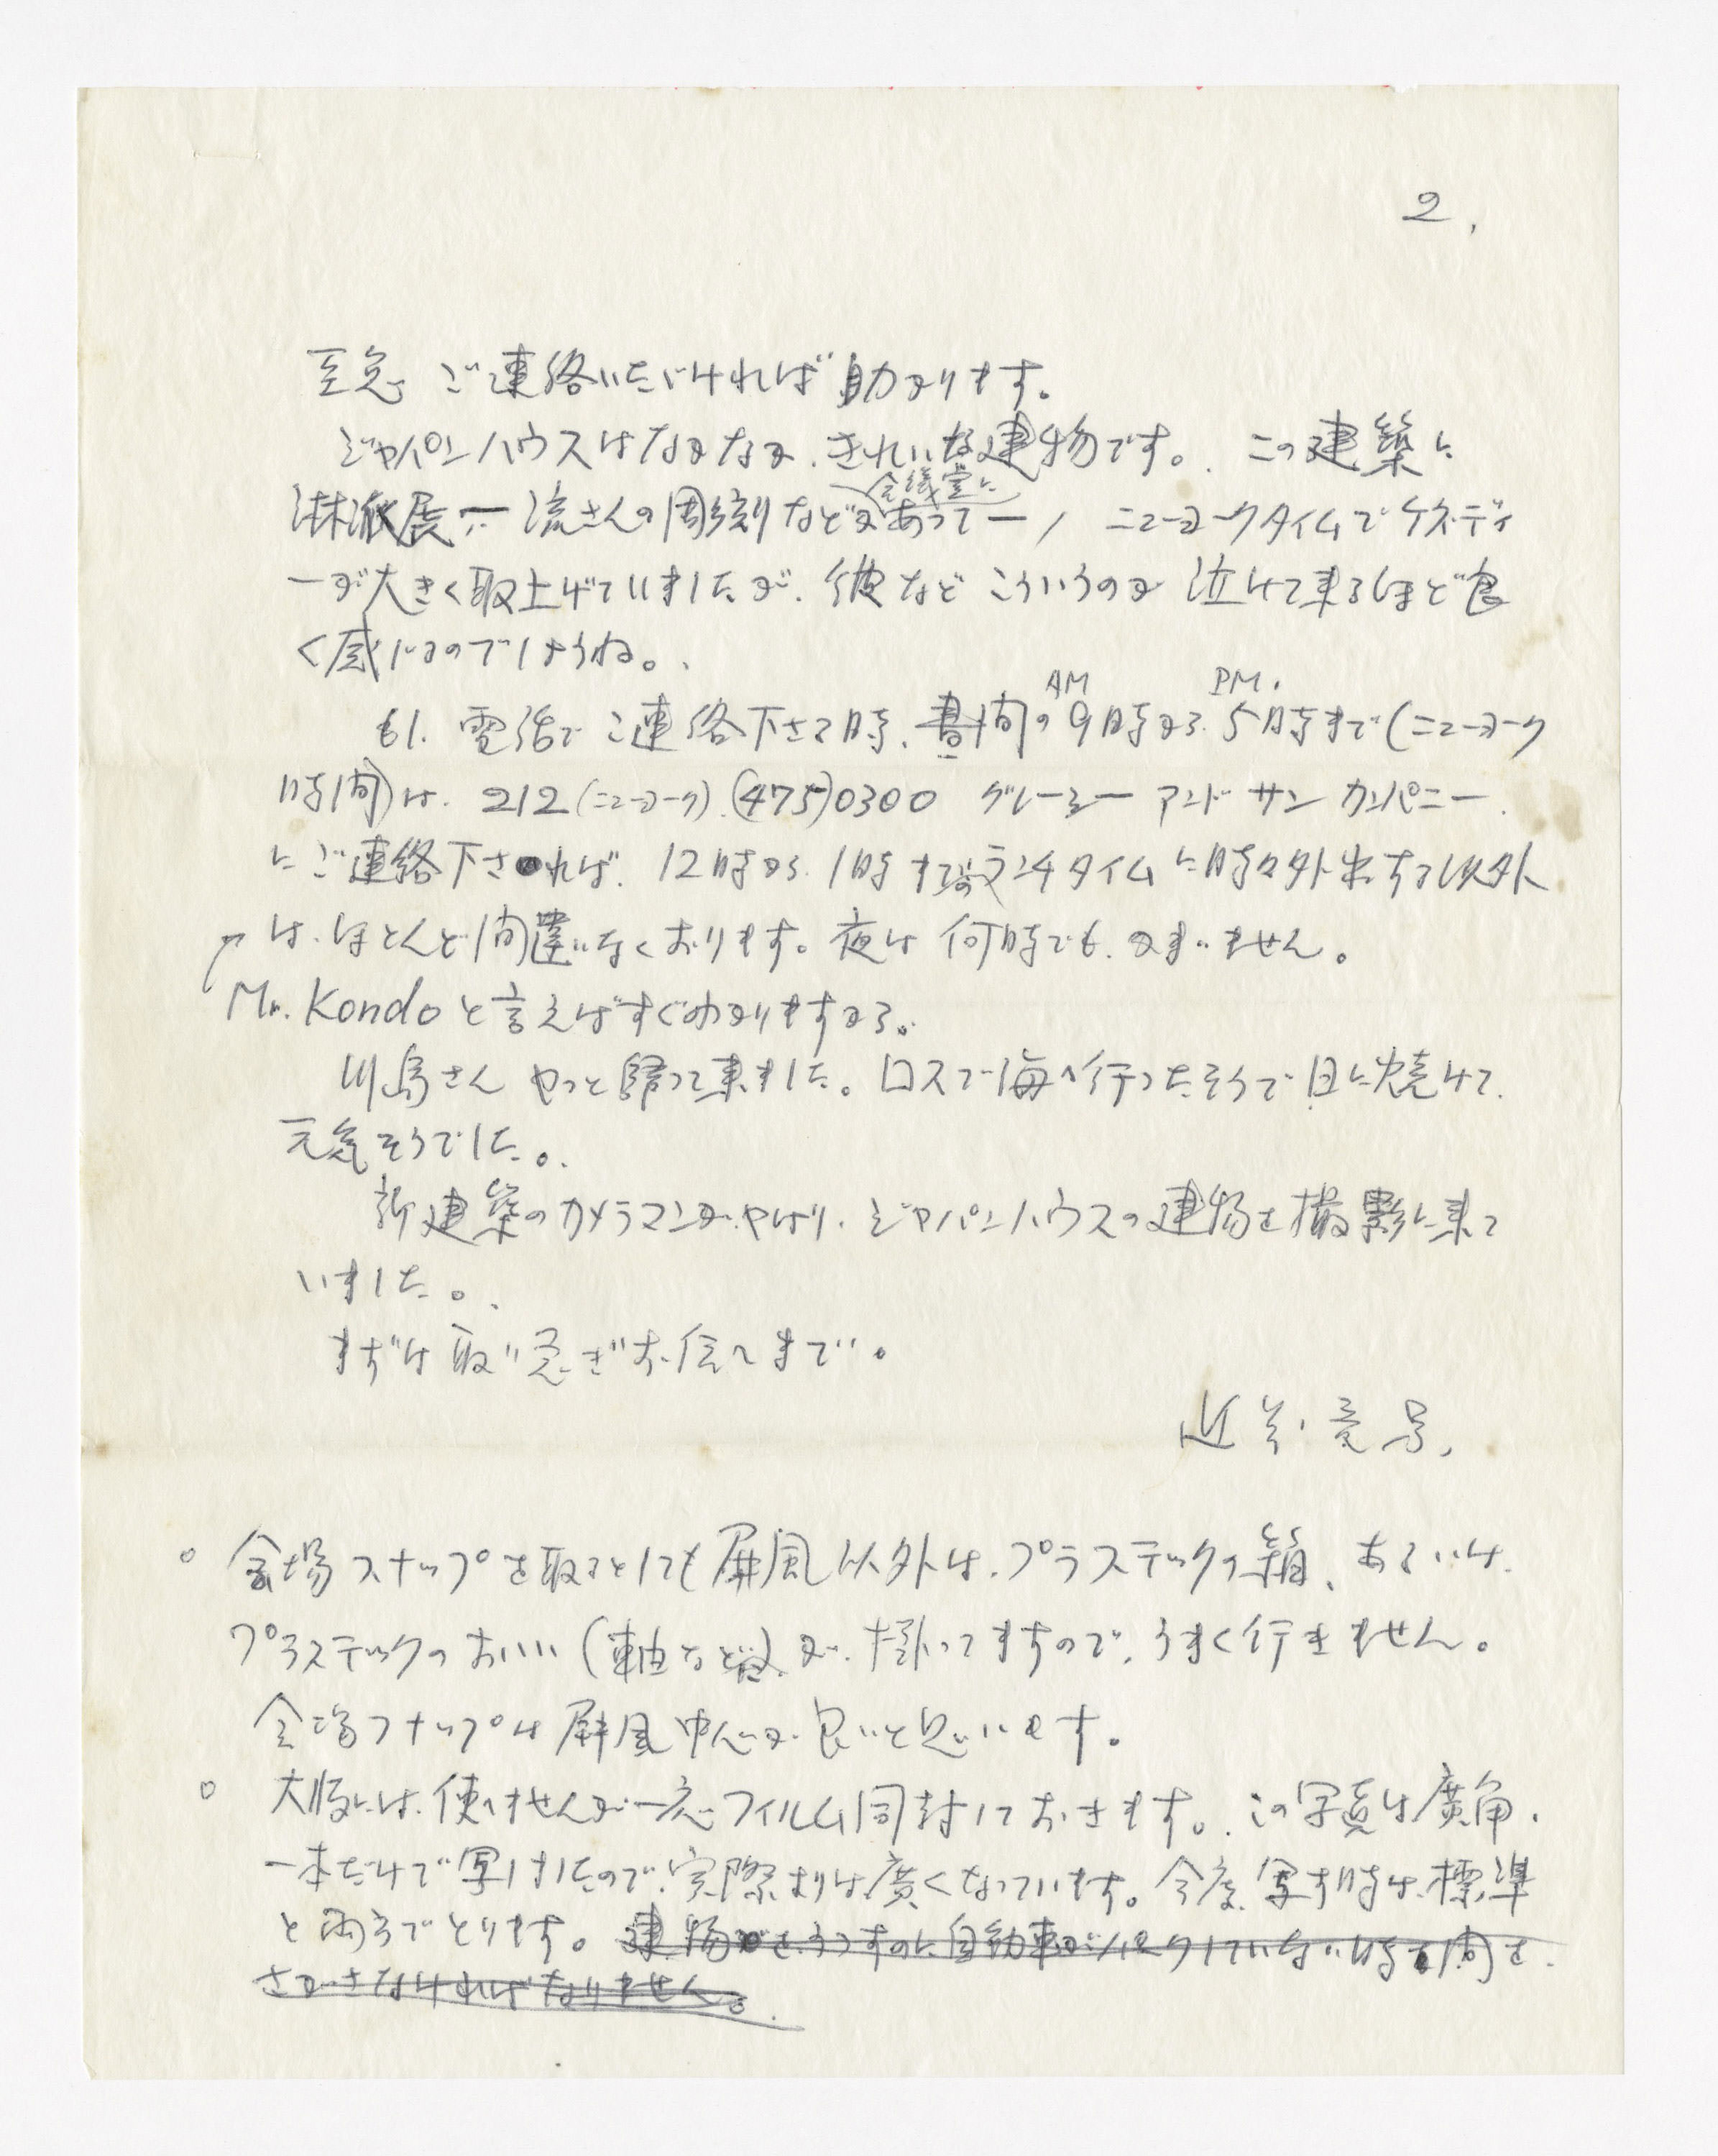 2.
至急 ご連絡いただければ助かります。
ジャパンハウスはなかなか、きれいな建物です。この建築に
会議室に
琳派展 ― 流さんの彫刻などがあって ―、ニューヨークタイムでケネディ
ーが大きく取上げていましたが、彼など こういうのが 泣けて来るほど良
く感じるのでしょうね。
AM PM.
もし電話でご連絡下さる時、昼間の9時から5時まで(ニューヨーク
時間)は、212(ニューヨーク).(475)0300 グレーシー アンド サン カンパニー
にご連絡下されば、12時から1時までランチタイムに時々外出する以外
は、ほとんど間違いなくおります。夜は何時でも、かまいません。
Mr. Kondo と言えばすぐわかりますから。
川島さん やっと帰って来ました。ロスで海へ行ったそうで日に焼けて
元気そうでした。
新建築のカメラマンが、やはり、ジャパンハウスの建物を撮影に来て
いました。
まずは取り急ぎお伝えまで。
近
会場スナップを取るとしても屏風以外は、プラスチックの箱、あるいは、
プラスチックのおい(軸など)が、掛ってますので、うまく行きません。
会場スナップは屏風中心が良いと思います。
大阪には、使えませんが一応フィルム同封しておきます。この写真は廣角
一本だけで写しましたので、実際よりは廣くなっています。今度、写す時は、標準
と両方でとります。建物をうつすのに自動車がパークしていない時間を
さがさなければなりません。